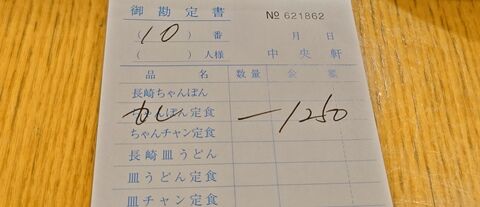 御勘定書 № 621862
(10) 番 月 日
( ) 人様 中央軒
品名 数量 金額
長崎ちゃんぽん
ちゃんぽん定食 一 1250
ちゃんチャン定食
長崎皿うどん
皿うどん定食
皿チャン定食